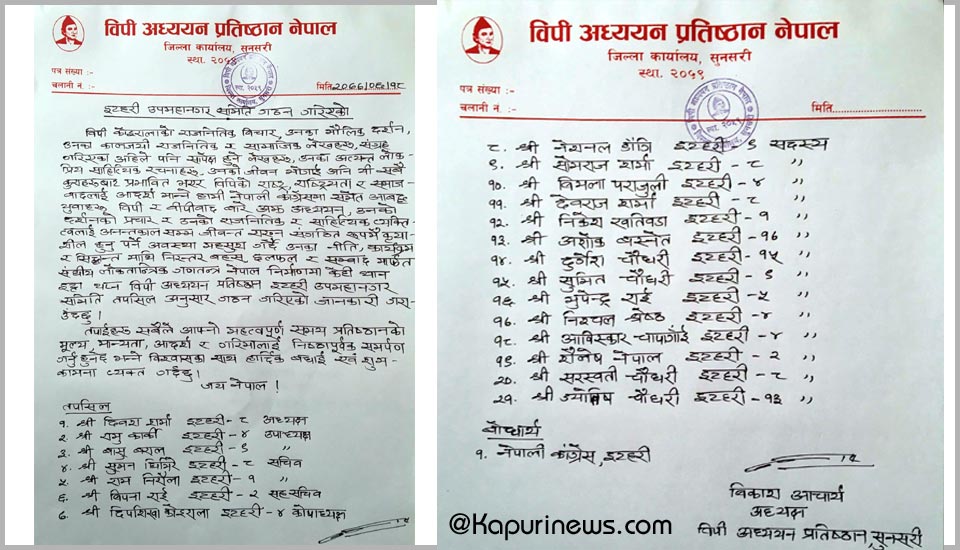 विपी अध्ययन प्रतिष्ठान नेपाल
जिल्ला कार्यालय, सुनसरी
स्था. २०५९
पत्र संख्या :-
चलानी नं. :-
मिति २०७७/०६/१८
इटहरी उपमहानगर समिति गठन गरिएको
विपी कोइरालाका राजनितिक विचार, उनका मौलिक दर्शन,
उनका कालजयी राजनितिक र सामाजिक लेखहरु, संग्रह
गरिएका अहिले पनि सापेक्ष हुने लेखहरु, उनका अत्यन्त लोक-
प्रिय साहित्यिक रचनाहरु, उनको जीवन भोगाई अनि यी सबै
कुराहरुबाट प्रभावित भएर विपिको राष्ट्र, राष्ट्रियता र समाज-
वादलाई आदर्श मान्ने हामी नेपाली कांग्रेसमा समेत आबद्ध
युवाहरु विपी र वीपीवाद बारे अझ अध्ययन, उनको
दर्शनको प्रचार र उनको राजनितिक र साहित्यिक व्यक्ति-
त्वलाई अनन्तकाल सम्म जीवन्त राख्न संगठित रूपमै क्रिया-
शील हुनु पर्ने अवस्था महसुस गर्दै उनका नीति, कार्यक्रम
र सिद्धान्त माथि निरन्तर बहस, छलफल र सम्वाद मार्फत
संघीय लोकतान्त्रिक गणतन्त्र नेपाल निर्माणमा केही थान
इट्टा थप्न विपी अध्ययन प्रतिष्ठान इटहरी उपमहानगर
समिति तपसिल अनुसार गठन गरिएको जानकारी गरा-
उँदछु ।
तपाईहरु सबैले आफ्नो महत्वपूर्ण समय प्रतिष्ठानको
मूल्य, मान्यता, आदर्श र गरिमालाई निष्ठापूर्वक समर्पण
गर्नु हुनेछ भन्ने विश्वासका साथ हार्दिक बधाई एवं शुभ-
कामना व्यक्त गर्दछु ।
जय नेपाल !
तपसिल
१. श्री दिवश शर्मा इटहरी - ८ अध्यक्ष
२. श्री रामु कार्की इटहरी - ४ उपाध्यक्ष
३. श्री बासु बराल इटहरी - ६ "
४. श्री सुमन घिमिरे इटहरी - ८ सचिव
५. श्री राम निरौला इटहरी - १ "
६. श्री विपना राई इटहरी - २ सह सचिव
७. श्री दिपशिखा कोइराला इटहरी - ४ कोषाध्यक्ष
विपी अध्ययन प्रतिष्ठान नेपाल
जिल्ला कार्यालय, सुनसरी
स्था. २०५९
पत्र संख्या :-
चलानी नं. :-
मिति
८. श्री नेशनल इटहरी - ६ सदस्य
९. श्री सोमराज शर्मा इटहरी - ८ "
१०. श्री विमला पराजुली इटहरी - ४ "
११. श्री देवराज शर्मा इटहरी - ८ "
१२. श्री निकेश खतिवडा इटहरी - १ "
१३. श्री अशोक बस्नेत इटहरी - १७ "
१४. श्री दुर्गेश चौधरी इटहरी - १५ "
१५. श्री सुमित चौधरी इटहरी - ६ "
१६. श्री भुपेन्द्र राई इटहरी - ५ "
१७. श्री निश्चल श्रेष्ठ इटहरी - ४ "
१८. श्री आविस्कार चापागाँई इटहरी - ४ "
१९. श्री शैनेष नेपाल इटहरी - २ "
२०. श्री सरस्वती चौधरी इटहरी - ८ "
२१. श्री ज्योतिष चौधरी इटहरी - १३ "
बोधार्थ
१. नेपाली कांग्रेस, इटहरी
विकाश आचार्य
अध्यक्ष
विपी अध्ययन प्रतिष्ठान, सुनसरी
@Kapurinews.com